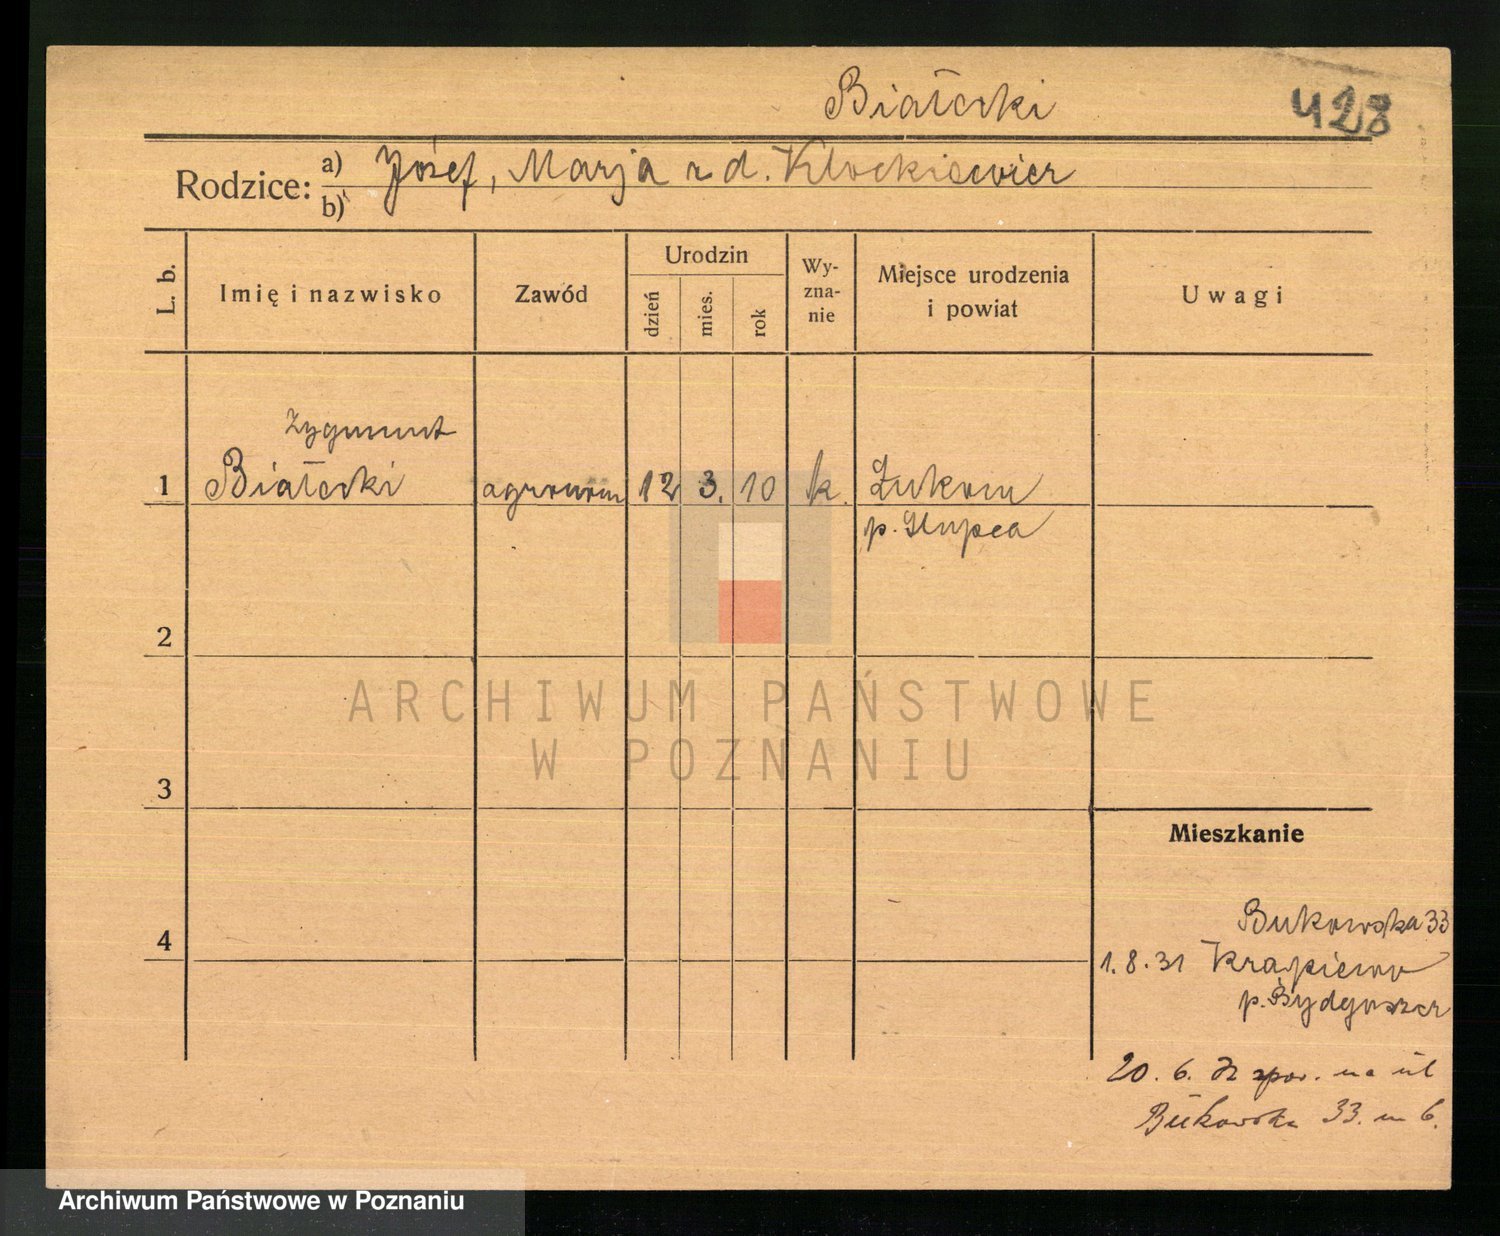 Białecki
428
Rodzice: a) Józef, Marja z d. Kłockiewicz
b)
L. b.
Imię i nazwisko
Zawód
Urodzin
dzień
mies.
rok
Wy-
zna-
nie
Miejsce urodzenia
i powiat
Uwagi
Zygmunt
1 Białecki agronom 12 3. 10 k. Lukom
p. Słupca
2
ARCHIWUM PAŃSTWOWE
W POZNANIU
3
Mieszkanie
4
Bukowska 33
1.8.31
p. Bydgoszcz
20. 6. 32 spow. na ul
Bukowska 33. m 6.
Archiwum Państwowe w Poznaniu